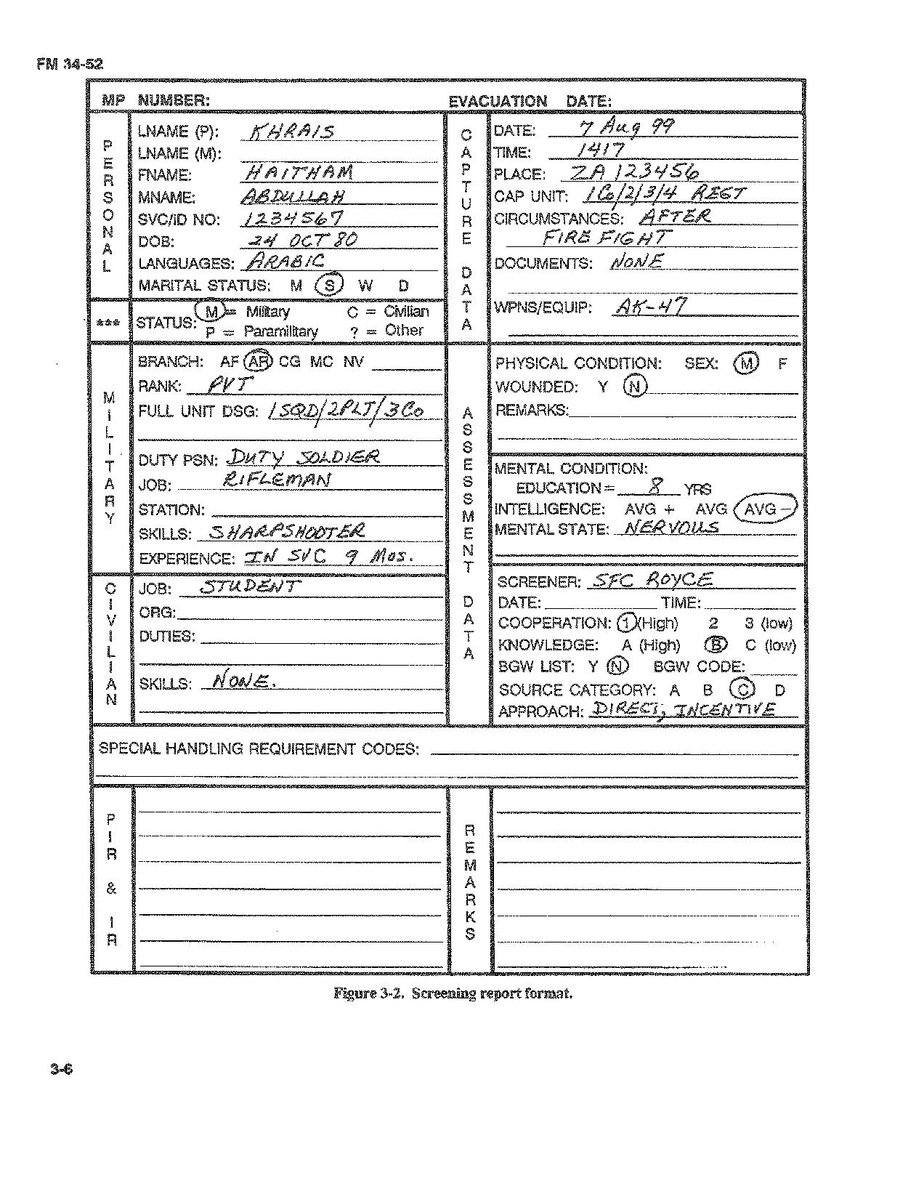 FM 34-52
MP NUMBER: EVACUATION DATE:
PERSONAL
LNAME (P): KHRAIS
LNAME (M):
FNAME: HAITHAM
MNAME: ABDULLAH
SVC/ID NO: 1234567
DOB: 24 OCT 80
LANGUAGES: ARABIC
MARITAL STATUS: M S W D
***
STATUS: M = Military C = Civilian
P = Paramilitary ? = Other
CAPTURE DATA
DATE: 7 Aug 99
TIME: 1417
PLACE: ZA 123456
CAP UNIT: 1Co/2/3/4 REGT
CIRCUMSTANCES: AFTER
FIRE FIGHT
DOCUMENTS: NONE
WPNS/EQUIP: AK-47
MILITARY
BRANCH: AF AR CG MC NV
RANK: PVT
FULL UNIT DSG: 1SQD/2PLT/3Co
DUTY PSN: DUTY SOLDIER
JOB: RIFLEMAN
STATION:
SKILLS: SHARPSHOOTER
EXPERIENCE: IN SVC 9 Mos.
CIVILIAN
JOB: STUDENT
ORG:
DUTIES:
SKILLS: NONE.
ASSESSMENT DATA
PHYSICAL CONDITION: SEX: M F
WOUNDED: Y N
REMARKS:
MENTAL CONDITION:
EDUCATION = 8 YRS
INTELLIGENCE: AVG + AVG AVG -
MENTAL STATE: NERVOUS
SCREENER: SFC ROYCE
DATE: TIME:
COOPERATION: 1 (High) 2 3 (low)
KNOWLEDGE: A (High) B C (low)
BGW LIST: Y N BGW CODE:
SOURCE CATEGORY: A B C D
APPROACH: DIRECT, INCENTIVE
SPECIAL HANDLING REQUIREMENT CODES:
PIR & IR
REMARKS
Figure 3-2. Screening report format.
3-6